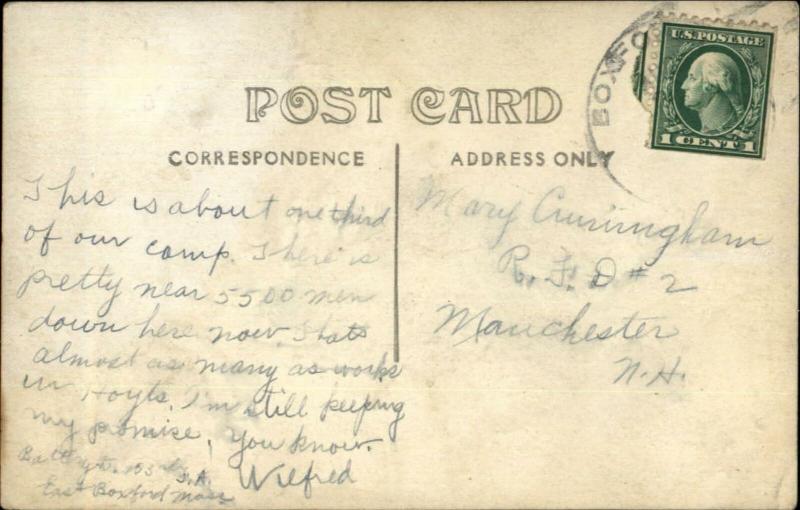 POST CARD
CORRESPONDENCE
ADDRESS ONLY
BOXFO
U.S. POSTAGE
1 CENT 1
This is about one third
of our camp. There is
pretty near 5500 men
down here now. Thats
almost as many as works
in Hoyts. I'm still keeping
my promise, you know.
Wilfred
103rd F.A.
East Boxford Mass
Mary Cunningham
R. F. D # 2
Manchester
N. H.